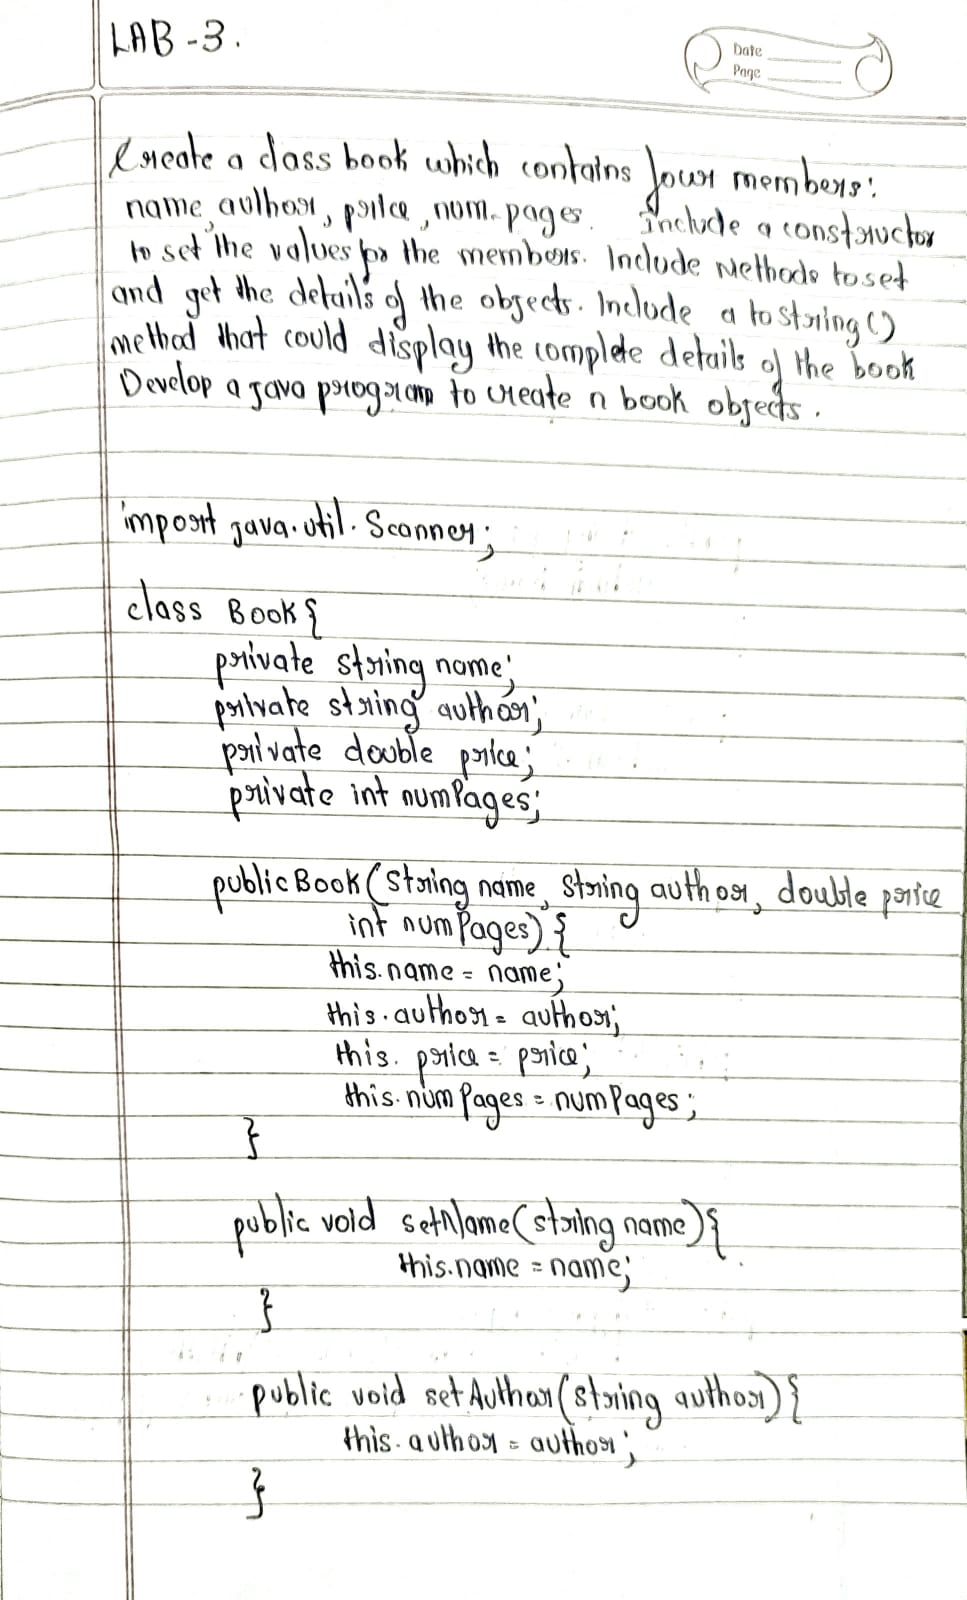 LAB - 3.
Date
Page
Create a class book which contains four members:
name, author, price, num-pages. Include a constructor
to set the values for the members. Include Methods to set
and get the details of the objects. Include a toString()
method that could display the complete details of the book
Develop a java program to create n book objects.
import java.util.Scanner;
class Book{
private string name;
private string author;
private double price;
private int numPages;
public Book(String name, String author, double price
int numPages) {
this.name = name;
this.author = author;
this.price = price;
this.numPages = numPages;
}
public void setName(string name){
this.name = name;
}
public void setAuthor(string author){
this.author = author;
}